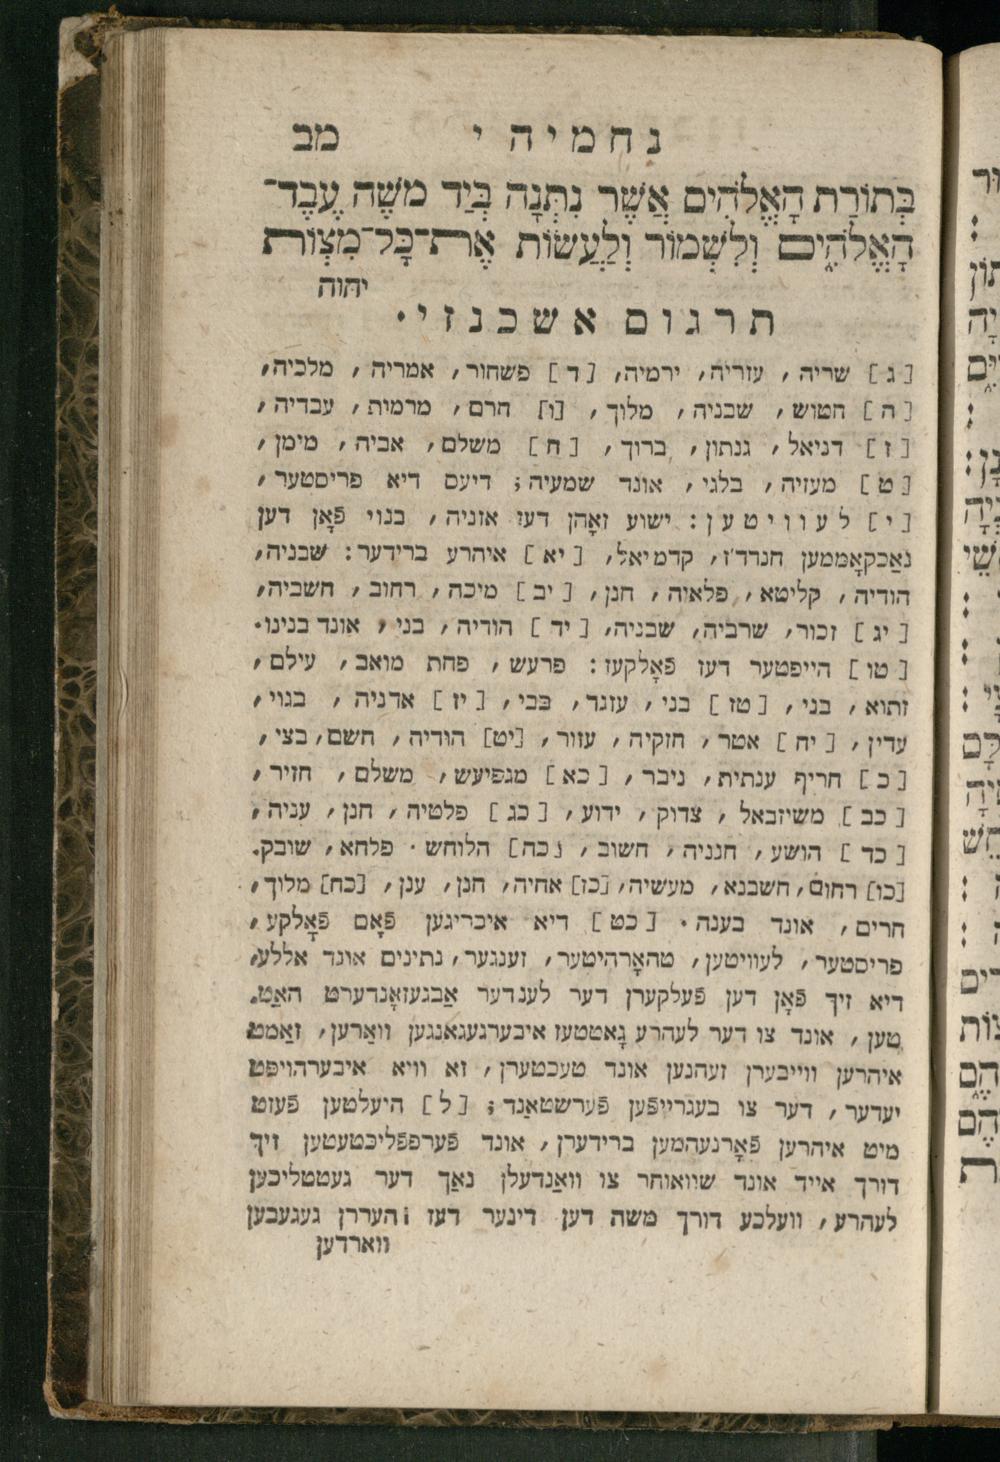 נחמיה י מב
בְּתוֹרַת הָאֱלֹהִים אֲשֶׁר נִתְּנָה בְּיַד מֹשֶׁה עֶבֶד־
הָאֱלֹהִים וְלִשְׁמוֹר וְלַעֲשׂוֹת אֶת־כָּל־מִצְוֹת
יהוה
תרגום אשכנזי·
[ג] שריה, עזריה, ירמיה, [ד] פשחור, אמריה, מלכיה,
[ה] חטוש, שבניה, מלוך, [ו] חרם, מרמות, עבדיה,
[ז] דניאל, גנתון, ברוך, [ח] משלם, אביה, מימן,
[ט] מעזיה, בלגי, אונד שמעיה; דיעם דיא פריסטער,
[י] לעוויטען: ישוע זאָהן דעז אזניה, בנוי פֿאָן דען
נאַכקאָממען חנדד'ז, קדמיאל, [יא] איהרע ברידער: שבניה,
הודיה, קליטא, פלאיה, חנן, [יב] מיכה, רחוב, חשביה,
[יג] זכור, שרביה, שבניה, [יד] הודיה, בני, אונד בנינו·
[טו] הייפטער דעז פֿאָלקעז: פרעש, פחת מואב, עילם,
זתוא, בני, [טז] בני, עזגד, בבי, [יז] אדניה, בגוי,
עדין, [יח] אטר, חזקיה, עזור, [יט] הודיה, חשם, בצי,
[כ] חריף ענתית, ניבר, [כא] מגפיעש, משלם, חזיר,
[כב] משיזבאל, צדוק, ידוע, [כג] פלטיה, חנן, עניה,
[כד] הושע, חנניה, חשוב, [כה] הלוחש· פלחא, שובק.
[כו] רחום, חשבנא, מעשיה, [כז] אחיה, חנן, ענן, [כח] מלוך,
חרים, אונד בענה· [כט] דיא איבריגען פֿאָם פֿאָלקע,
פריסטער, לעוויטען, טהאָרהיטער, זענגער, נתינים אונד אללע,
דיא זיך פֿאָן דען פֿעלקערן דער לענדער אַבגעזאָנדערט האַט.
טען, אונד צו דער לעהרע גאָטטעז איבערגעגאנגען וואַרען, זאַמט
איהרען ווייבערן זעהנען אונד טעכטערן, זא וויא איבערהויפט
יעדער, דער צו בעגרייפֿען פֿערשטאַנד; [ל] היעלטען פֿעזט
מיט איהרען פֿאָרנעהמען ברידערן, אונד פֿערפפֿליכטעטען זיך
דורך אייד אונד שוואוחר צו וואַנדעלן נאַך דער געטטליכען
לעהרע, וועלכע דורך משה דען דינער דעז העררן געגעבען
ווארדען